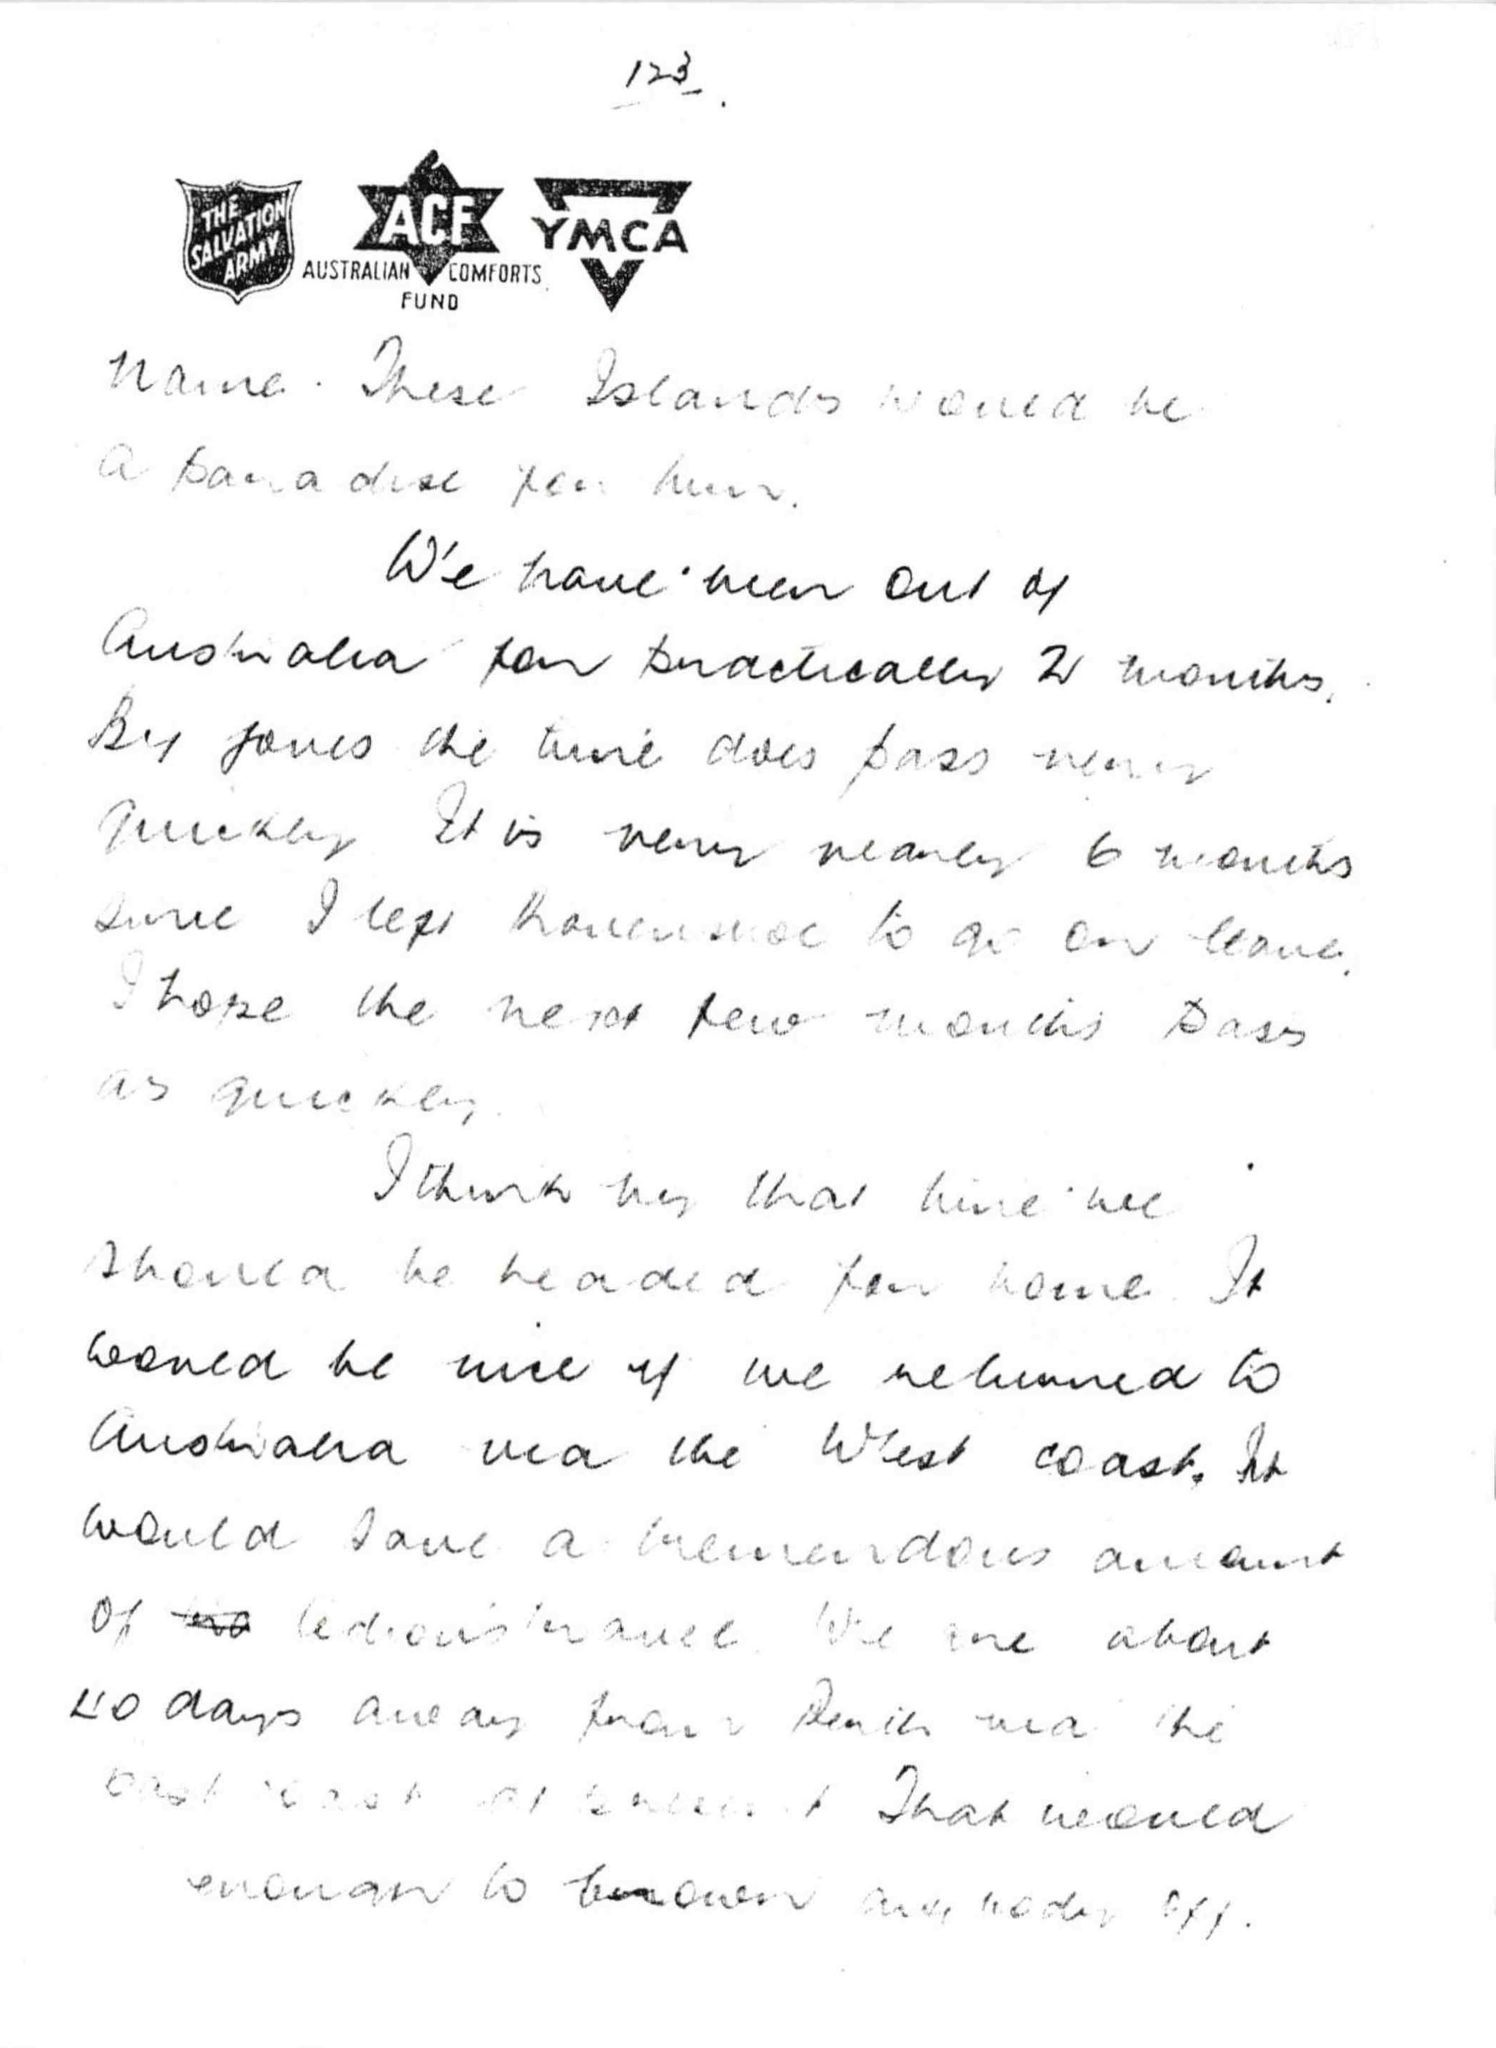 123.
THE SALVATION ARMY
ACF
AUSTRALIAN COMFORTS FUND
YMCA
name. These Islands would be
a paradise for him.
We have been out of
Australia for practically 2 months.
By joves the time does pass very
quickly It is very nearly 6 months
since I left Ravenshoe to go on leave.
I hope the next few months pass
as quickly.
I think by that time we
should be headed for home. It
would be nice if we returned to
Australia via the West coast. It
would save a tremendous amount
of tedious travel. We are about
40 days away from Perth via the
east coast at present That would
enough to brown anybody off.